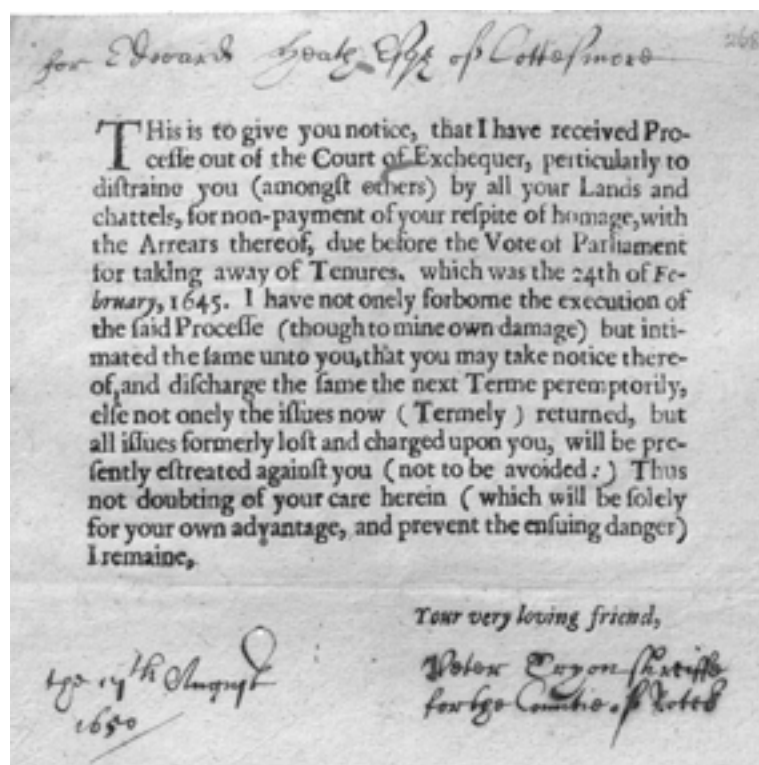 for Edward Heath Esqr of Cottesmore
268
THis is to give you notice, that I have received Pro-
cesse out of the Court of Exchequer, perticularly to
distraine you (amongst others) by all your Lands and
chattels, for non-payment of your respite of homage, with
the Arrears thereof, due before the Vote of Parliament
for taking away of Tenures. which was the 24th of Fe-
bruary, 1645. I have not onely forborne the execution of
the said Processe (though to mine own damage) but inti-
mated the same unto you, that you may take notice there-
of, and discharge the same the next Terme peremptorily,
else not onely the issues now (Termely) returned, but
all issues formerly lost and charged upon you, will be pre-
sently estreated against you (not to be avoided:) Thus
not doubting of your care herein (which will be solely
for your own advantage, and prevent the ensuing danger)
I remaine,
Your very loving friend,
Peter Tryon sheriffe
for the Countie of
the August
1650